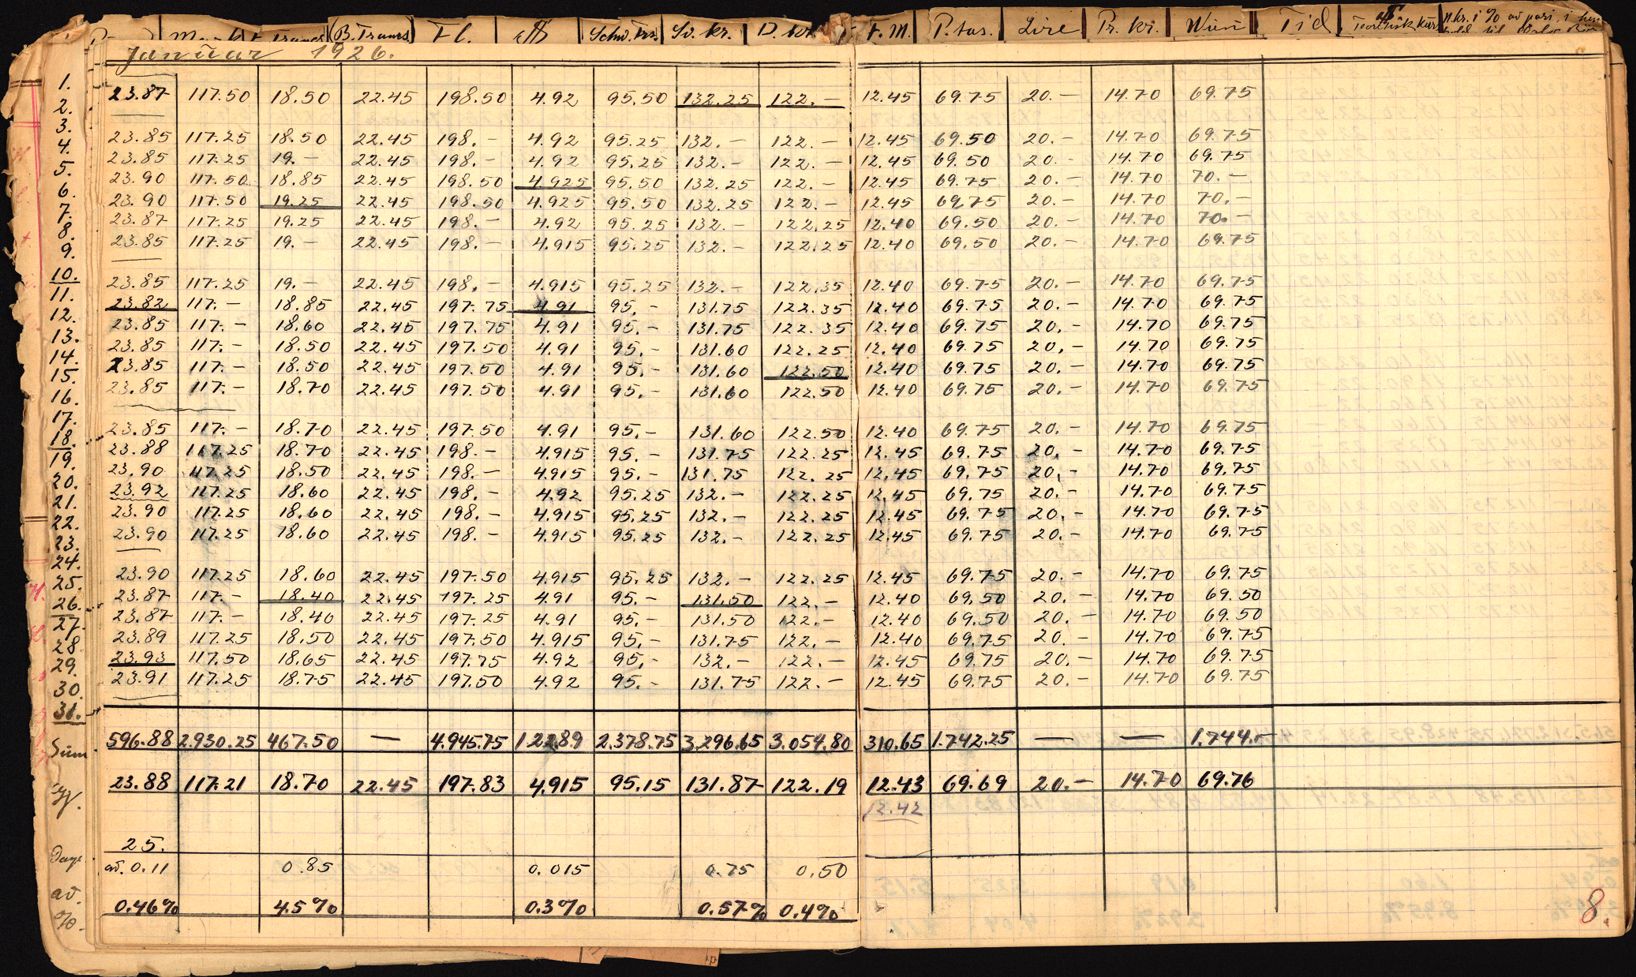 Mark B. Francs Fl. Schw. frs. Sv. kr. D. kr. F. M. P. tas. Lire Pr. kr. Wien Tid
Januar 1926.
1.
2. 23.87 117.50 18.50 22.45 198.50 4.92 95.50 132.25 122.— 12.45 69.75 20.— 14.70 69.75
3.
4. 23.85 117.25 18.50 22.45 198.— 4.92 95.25 132.— 122.— 12.45 69.50 20.— 14.70 69.75
5. 23.85 117.25 19.— 22.45 198.— 4.92 95.25 132.— 122.— 12.45 69.50 20.— 14.70 69.75
6. 23.90 117.50 18.85 22.45 198.50 4.925 95.50 132.25 122.— 12.45 69.75 20.— 14.70 70.—
7. 23.90 117.50 19.25 22.45 198.50 4.925 95.50 132.25 122.— 12.45 69.75 20.— 14.70 70.—
8. 23.87 117.25 19.25 22.45 198.— 4.92 95.25 132.— 122.25 12.40 69.50 20.— 14.70 70.—
9. 23.85 117.25 19.— 22.45 198.— 4.915 95.25 132.— 122.25 12.40 69.50 20.— 14.70 69.75
10.
11. 23.85 117.25 19.— 22.45 198.— 4.915 95.25 132.— 122.35 12.40 69.75 20.— 14.70 69.75
12. 23.82 117.— 18.85 22.45 197.75 4.91 95.— 131.75 122.35 12.40 69.75 20.— 14.70 69.75
13. 23.85 117.— 18.60 22.45 197.75 4.91 95.— 131.75 122.35 12.40 69.75 20.— 14.70 69.75
14. 23.85 117.— 18.50 22.45 197.50 4.91 95.— 131.60 122.25 12.40 69.75 20.— 14.70 69.75
15. 23.85 117.— 18.50 22.45 197.50 4.91 95.— 131.60 122.50 12.40 69.75 20.— 14.70 69.75
16. 23.85 117.— 18.70 22.45 197.50 4.91 95.— 131.60 122.50 12.40 69.75 20.— 14.70 69.75
17.
18. 23.85 117.— 18.70 22.45 197.50 4.91 95.— 131.60 122.50 12.40 69.75 20.— 14.70 69.75
19. 23.88 117.25 18.70 22.45 198.— 4.915 95.— 131.75 122.25 12.45 69.75 20.— 14.70 69.75
20. 23.90 117.25 18.50 22.45 198.— 4.915 95.— 131.75 122.25 12.45 69.75 20.— 14.70 69.75
21. 23.92 117.25 18.60 22.45 198.— 4.92 95.25 132.— 122.25 12.45 69.75 20.— 14.70 69.75
22. 23.90 117.25 18.60 22.45 198.— 4.915 95.25 132.— 122.25 12.45 69.75 20.— 14.70 69.75
23. 23.90 117.25 18.60 22.45 198.— 4.915 95.25 132.— 122.25 12.45 69.75 20.— 14.70 69.75
24.
25. 23.90 117.25 18.60 22.45 197.50 4.915 95.25 132.— 122.25 12.45 69.75 20.— 14.70 69.75
26. 23.87 117.— 18.40 22.45 197.25 4.91 95.— 131.50 122.— 12.40 69.50 20.— 14.70 69.50
27. 23.87 117.— 18.40 22.45 197.25 4.91 95.— 131.50 122.— 12.40 69.50 20.— 14.70 69.50
28. 23.89 117.25 18.50 22.45 197.50 4.915 95.— 131.75 122.— 12.40 69.75 20.— 14.70 69.75
29. 23.93 117.50 18.65 22.45 197.75 4.92 95.— 132.— 122.— 12.45 69.75 20.— 14.70 69.75
30. 23.91 117.25 18.75 22.45 197.50 4.92 95.— 131.75 122.— 12.45 69.75 20.— 14.70 69.75
31.
Sum 596.88 2.930.25 467.50 — 4.945.75 122.89 2.378.75 3.296.65 3.054.80 310.65 1.742.25 — — 1.744.—
23.88 117.21 18.70 22.45 197.83 4.915 95.15 131.87 122.19 12.43 69.69 20.— 14.70 69.76
12.42
25.
Dage
av. 0.11 0.85 0.015 0.75 0.50
av.
%. 0.46% 4.5% 0.3% 0.57% 0.4%
8.